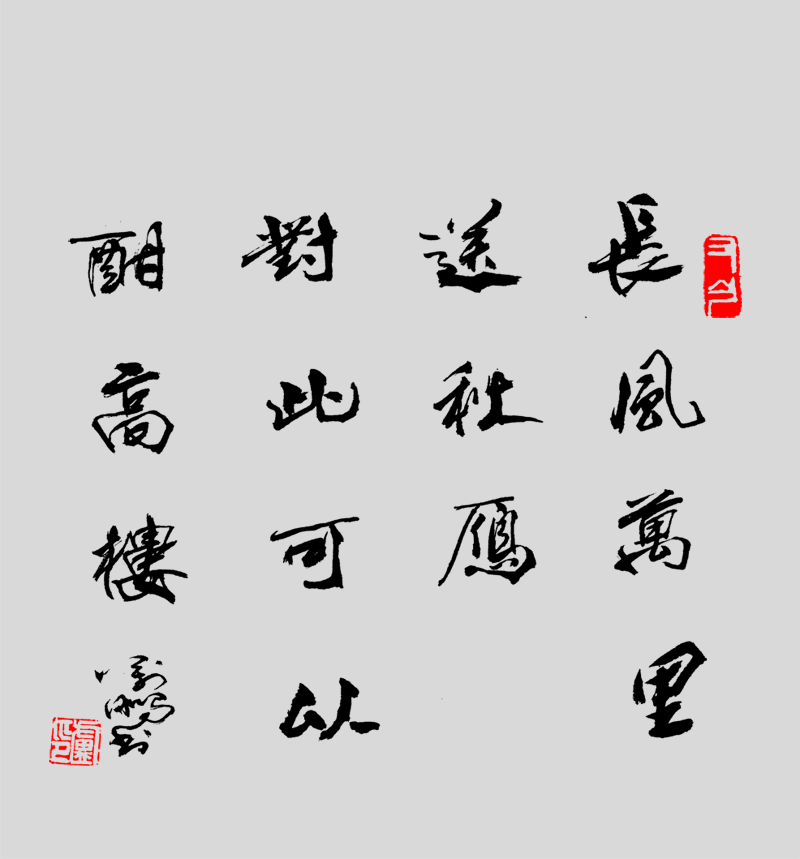 長風萬里
送秋鴈
對此可以
酣高樓